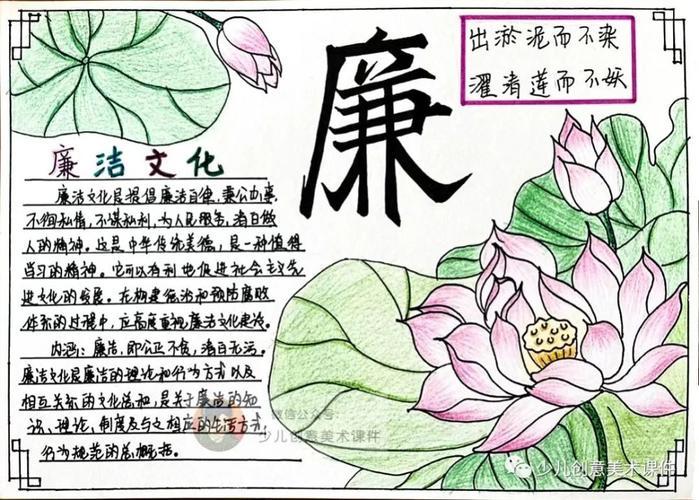 廉
出淤泥而不染
濯清莲而不妖
廉洁文化
廉洁文化是提倡廉洁自律,秉公办事,
不徇私情,不谋私利,为人民服务,清白做
人的精神。这是中华传统美德,是一种值得
学习的精神。它可以有利地促进社会主义先
进文化的发展。在构建惩治和预防腐败
体系的过程中,应高度重视廉洁文化建设。
内涵:廉洁,即公正不贪,清白无污。
廉洁文化是廉洁的理论和行为方式以及
相互关系的文化总和,是关于廉洁的知
识、理论、制度及与之相应的生活方式,
行为规范的总概括。
微信公众号:
少儿创意美术课件
少儿创意美术课件